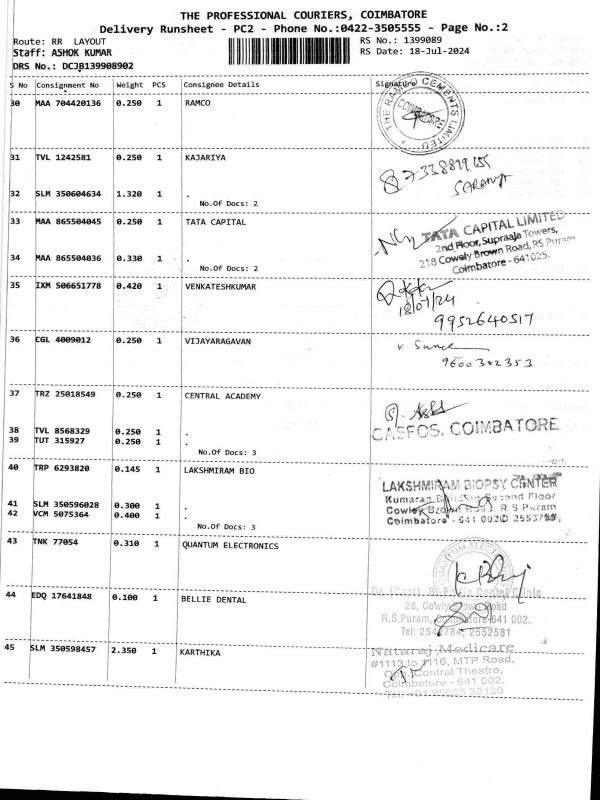 THE PROFESSIONAL COURIERS, COIMBATORE
Delivery Runsheet - PC2 - Phone No.:0422-3505555 - Page No.:2
Route: RR LAYOUT RS No.: 1399089
Staff: ASHOK KUMAR RS Date: 18-Jul-2024
DRS No.: DCJB139908902
S No Consignment No Weight PCS Consignee Details Signature
30 MAA 704420136 0.250 1 RAMCO
THE RAMCO CEMENTS LIMITED
COIMBATORE
31 TVL 1242581 0.250 1 KAJARIYA
32 SLM 350604634 1.320 1 .
No.Of Docs: 2
33 MAA 865504045 0.250 1 TATA CAPITAL
TATA CAPITAL LIMITED
2nd Floor, Supraaja Towers,
218 Cowely Brown Road, RS Puram
Coimbatore - 641025.
34 MAA 865504036 0.330 1 .
No.Of Docs: 2
35 IXM 506651778 0.420 1 VENKATESHKUMAR
18/07/24
9952640517
36 CGL 4009012 0.250 1 VIJAYARAGAVAN
9600302353
37 TRZ 25018549 0.250 1 CENTRAL ACADEMY
CASFOS, COIMBATORE
38 TVL 8568329 0.250 1 .
39 TUT 315927 0.250 1 .
No.Of Docs: 3
40 TRP 6293820 0.145 1 LAKSHMIRAM BIO
LAKSHMIRAM BIOPSY CENTER
Kumaran Building Second Floor
Cowley Brown Road, R S Puram
Coimbatore - 641 002
41 SLM 350596028 0.300 1 .
42 VCM 5075364 0.400 1 .
No.Of Docs: 3
43 TNK 77054 0.310 1 QUANTUM ELECTRONICS
QUANTUM ELEC
44 EDQ 17641848 0.100 1 BELLIE DENTAL
Dental Clinic
28, Cowly Brown Road
R.S.Puram, Coimbatore-641 002.
2552581
45 SLM 350598457 2.350 1 KARTHIKA
Nataraj Medicare
#1113 to 1116, MTP Road,
Opp. Central Theatre,
Coimbatore - 641 002.